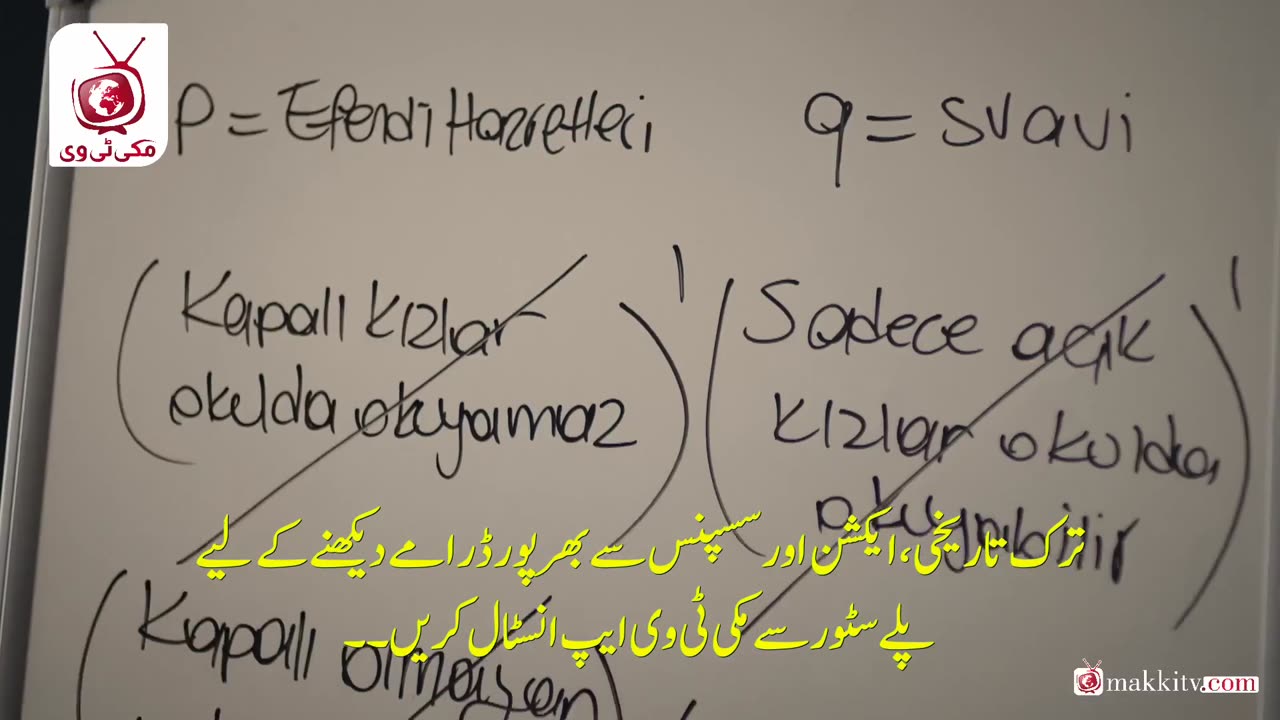 مکی ٹی وی
P = Efendi Hazretleri
q = svavi
(Kapalı kızlar
okulda okuyamaz)'
(Sadece açık
kızlar okulda
okuyabilir)'
ترک تاریخی، ایکشن اور سسپنس سے بھرپور ڈرامے دیکھنے کے لیے
پلے سٹور سے مکی ٹی وی ایپ انسٹال کریں۔۔
(Kapalı olmayan
makkitv.com